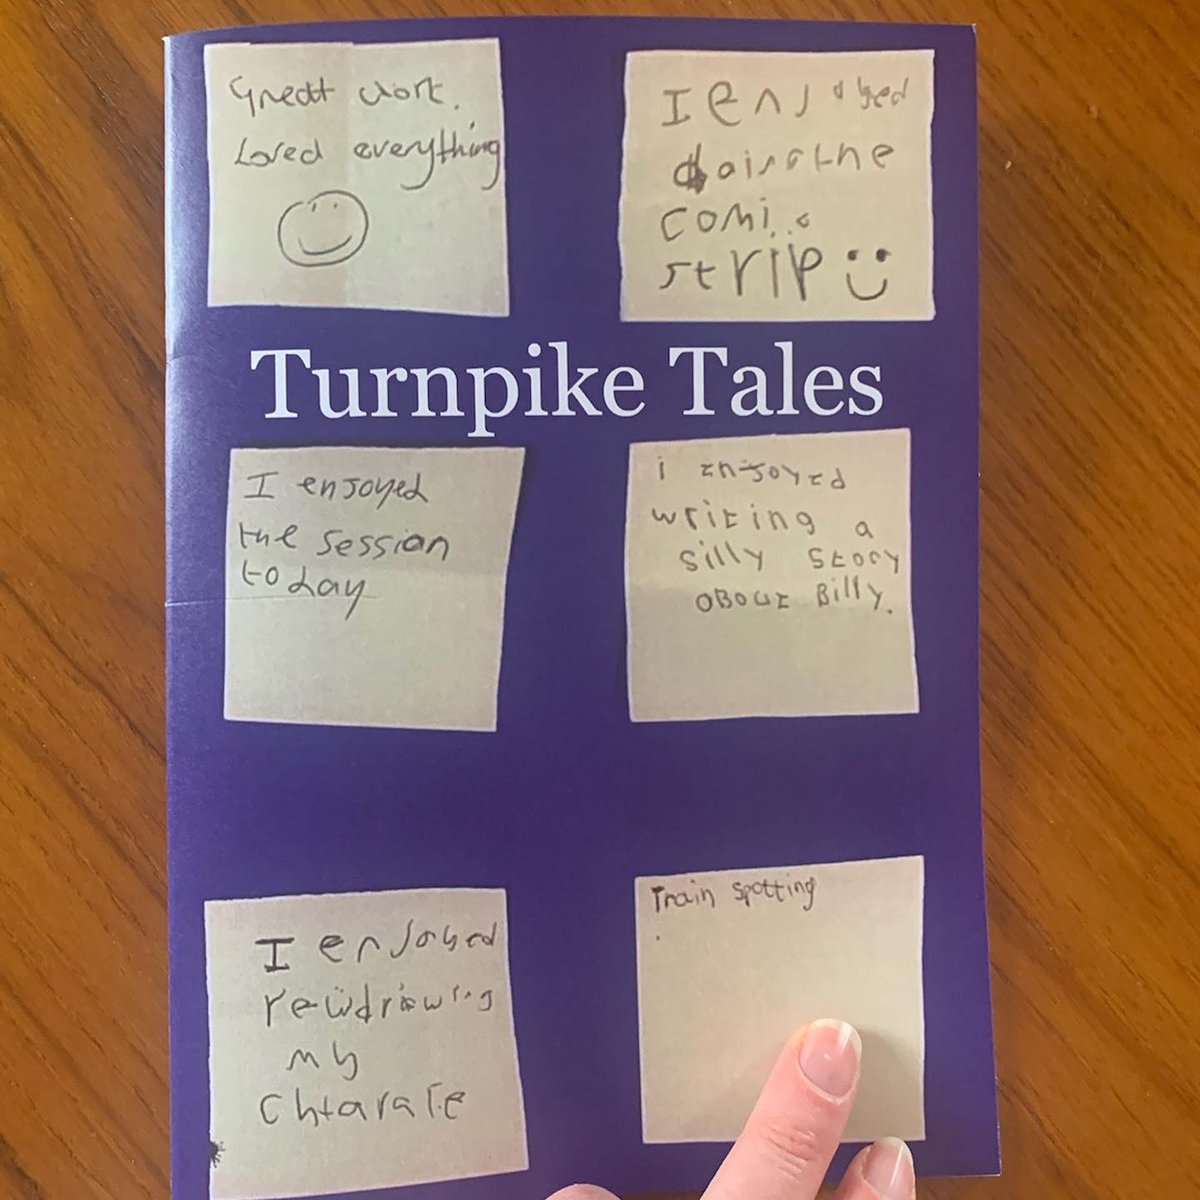 Great work.
Loved everything
I enjoyed
doing the
comic
strip
Turnpike Tales
I enjoyed
the session
today
i Enjoyed
writing a
silly story
about Billy.
I enjoyed
my
Train spotting